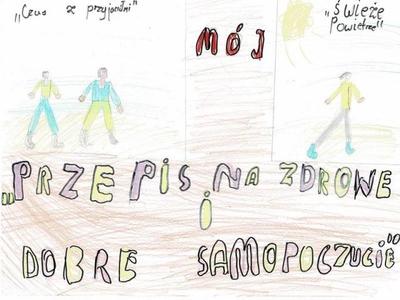 „Czas z przyjaciółmi"
MÓJ
„ŚWIEŻE
Powietrze"
„PRZEPIS NA ZDROWE
I
DOBRE SAMOPOCZUCIE"